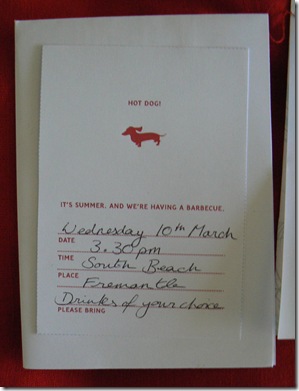 HOT DOG!
IT'S SUMMER. AND WE'RE HAVING A BARBECUE.
Wednesday 10th March
DATE
3.30pm
TIME
South Beach
PLACE
Fremantle
Drinks of your choice
PLEASE BRING